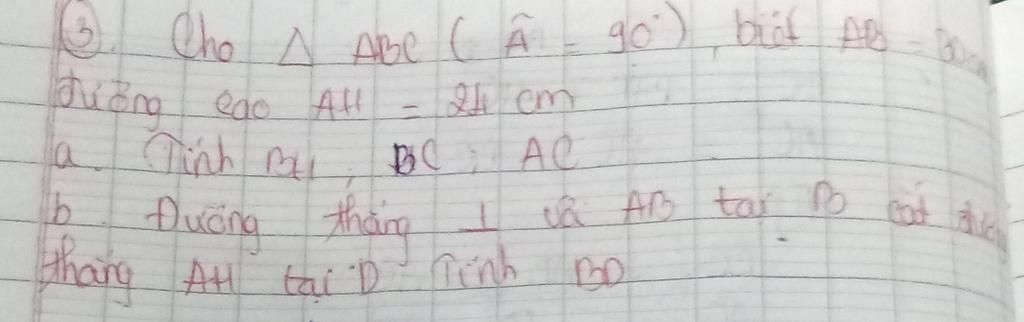 ③. Cho △ ABC ( Â = 90°), biết AB = 30cm
đường cao AH = 24 cm
a. Tính BH, BC, AC
b. Đường thẳng ⊥ với AB tại B cắt đường
thẳng AH tại D Tính BD